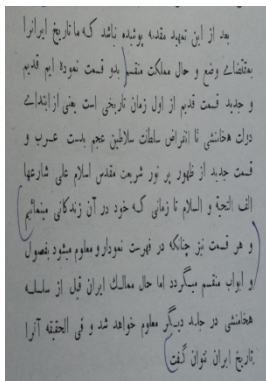 بعد از این تمهید مقدمه پوشیده ناشد که ما تاریخ ایرانرا
بمقتضای وضع و حال مملکت منقسم بدو قسمت نموده ایم قدیم
و جدید قسمت قدیم از اول زمان تاریخی است یعنی از ابتدای
دولت هخامنشی تا انقراض سلطنت سلاطین عجم بدست عرب و
قسمت جدید از ظهور پر نور شریعت مقدس اسلام علی شارعها
الف التحیة و السلام تا زمانی که خود در آن زندگانی مینمائیم
و هر قسمت نیز چنانکه در فهرست نمودار و معلوم میشود بفصول
و ابواب منقسم میگردد اما حال ممالک ایران قبل از سلسله
هخامنشی در جلد دیگر معلوم خواهد شد و فی الحقیقه آنرا
تاریخ ایران نتوان گفت